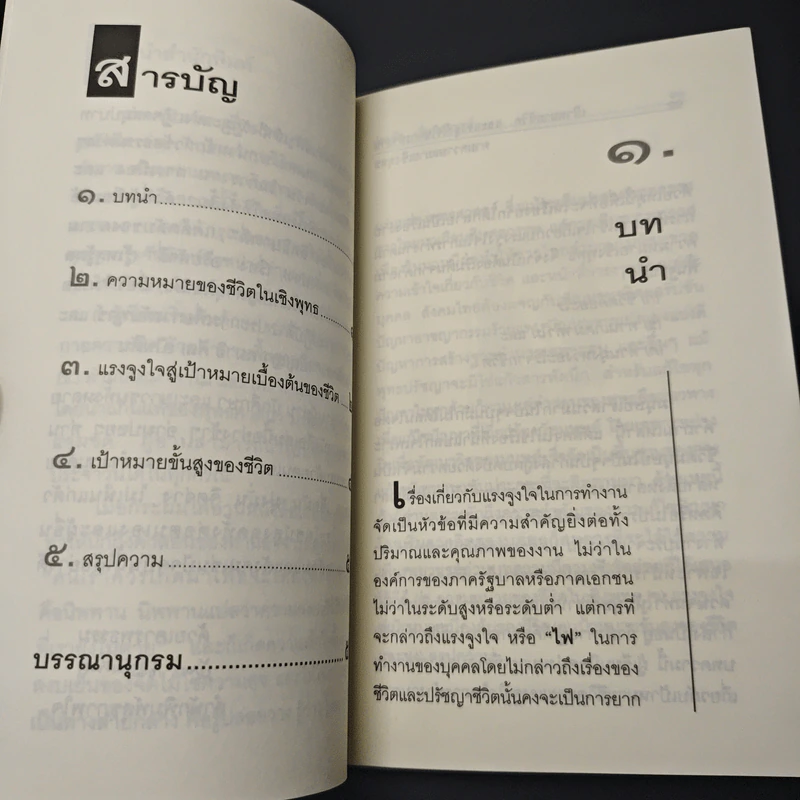 สารบัญ
๑. บทนำ
๒. ความหมายของชีวิตในเชิงพุทธ
๓. แรงจูงใจสู่เป้าหมายเบื้องต้นของชีวิต
๔. เป้าหมายขั้นสูงของชีวิต
๕. สรุปความ
บรรณานุกรม
๑.
บท
นำ
เรื่องเกี่ยวกับแรงจูงใจในการทำงาน
จัดเป็นหัวข้อที่มีความสำคัญยิ่งต่อทั้ง
ปริมาณและคุณภาพของงาน ไม่ว่าใน
องค์การของภาครัฐบาลหรือภาคเอกชน
ไม่ว่าในระดับสูงหรือระดับต่ำ แต่การที่
จะกล่าวถึงแรงจูงใจ หรือ “ไฟ” ในการ
ทำงานของบุคคลโดยไม่กล่าวถึงเรื่องของ
ชีวิตและปรัชญาชีวิตนั้นคงจะเป็นการยาก